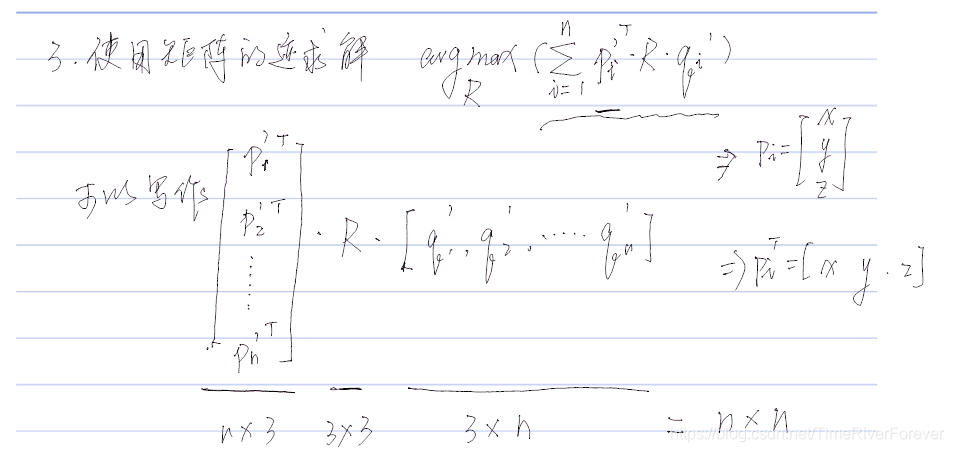 3. 使用矩阵的迹求解 arg max_R (∑_{i=1}^{n} p_i'^T · R · q_i')
⇒ p_i = [x y z]
可以写作 [p_1'^T p_2'^T ⋮ p_n'^T] · R · [q_1', q_2', ⋯⋯ q_n']
⇒ p_i^T = [x y . z]
n×3 3×3 3×n = n×n
https://blog.csdn.net/TimeRiverForever